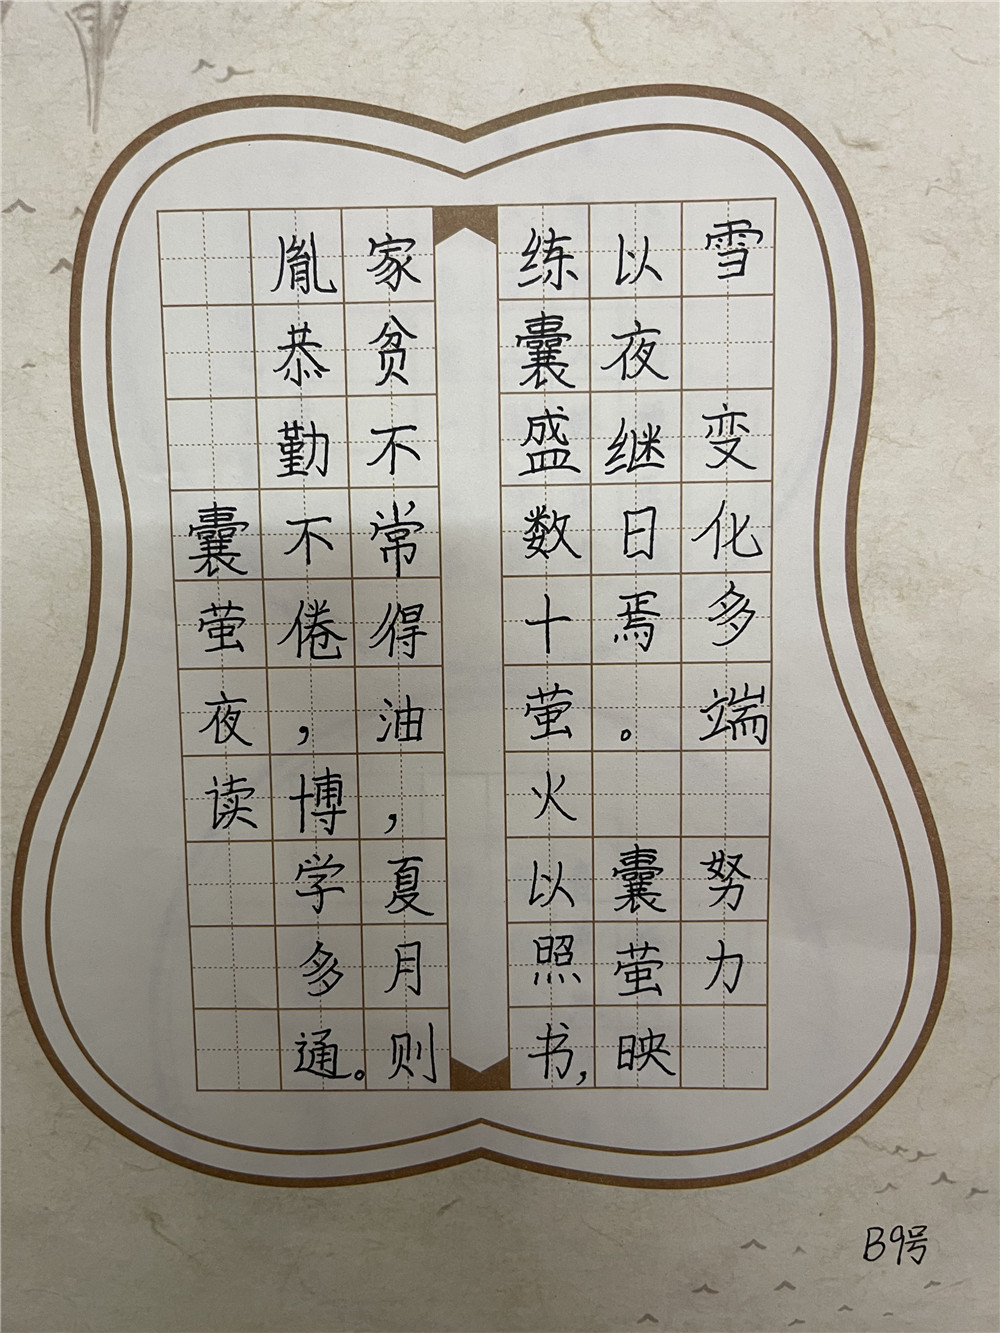 囊萤夜读
胤恭勤不倦，博学多通。
家贫不常得油，夏月则
练囊盛数十萤火以照书，
以夜继日焉。 囊萤映
雪 变化多端 努力
B9号